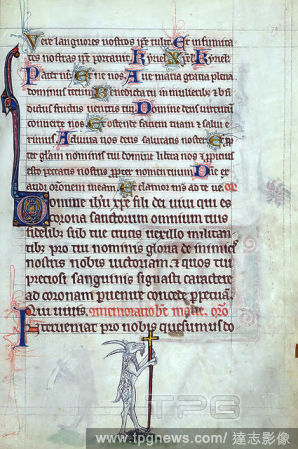 Vere languores nostros ipse tulit. Et infirmita
tes nostras ipse portavit. Kyriel. Xpel. Kyriel.
Pater nr. Et ne nos. Ave maria gratia plena
dominus tecum Benedicta tu in mulieribz & bn
dictus fructus ventris tui Domine deus virtutum
converte nos Et ostende faciem tuam & salvi e
rimus Adiuva nos deus salutaris noster Et pp
ter gliam nominis tui domine libera nos & propicius
esto peccatis nostris propter nomen tuum Dne ex
audi oronem meam. Et clamor ms ad te ve. oro
Domine ihu xpe fili dei vivi qui es
corona sanctorum omnium tuis
fidelibz sub tue crucis vexillo militan
tibz pro tui nominis gloria de inimicis
nostris nobis victoriam. & quos tui
preciosi sanguinis signasti caractere
ad coronam pvenire concede ppetuā.
Qui vivis. memoria de be marie. oro
Interveniat pro nobis quesumus do
TPG
www.tpgnews.com / 達志影像